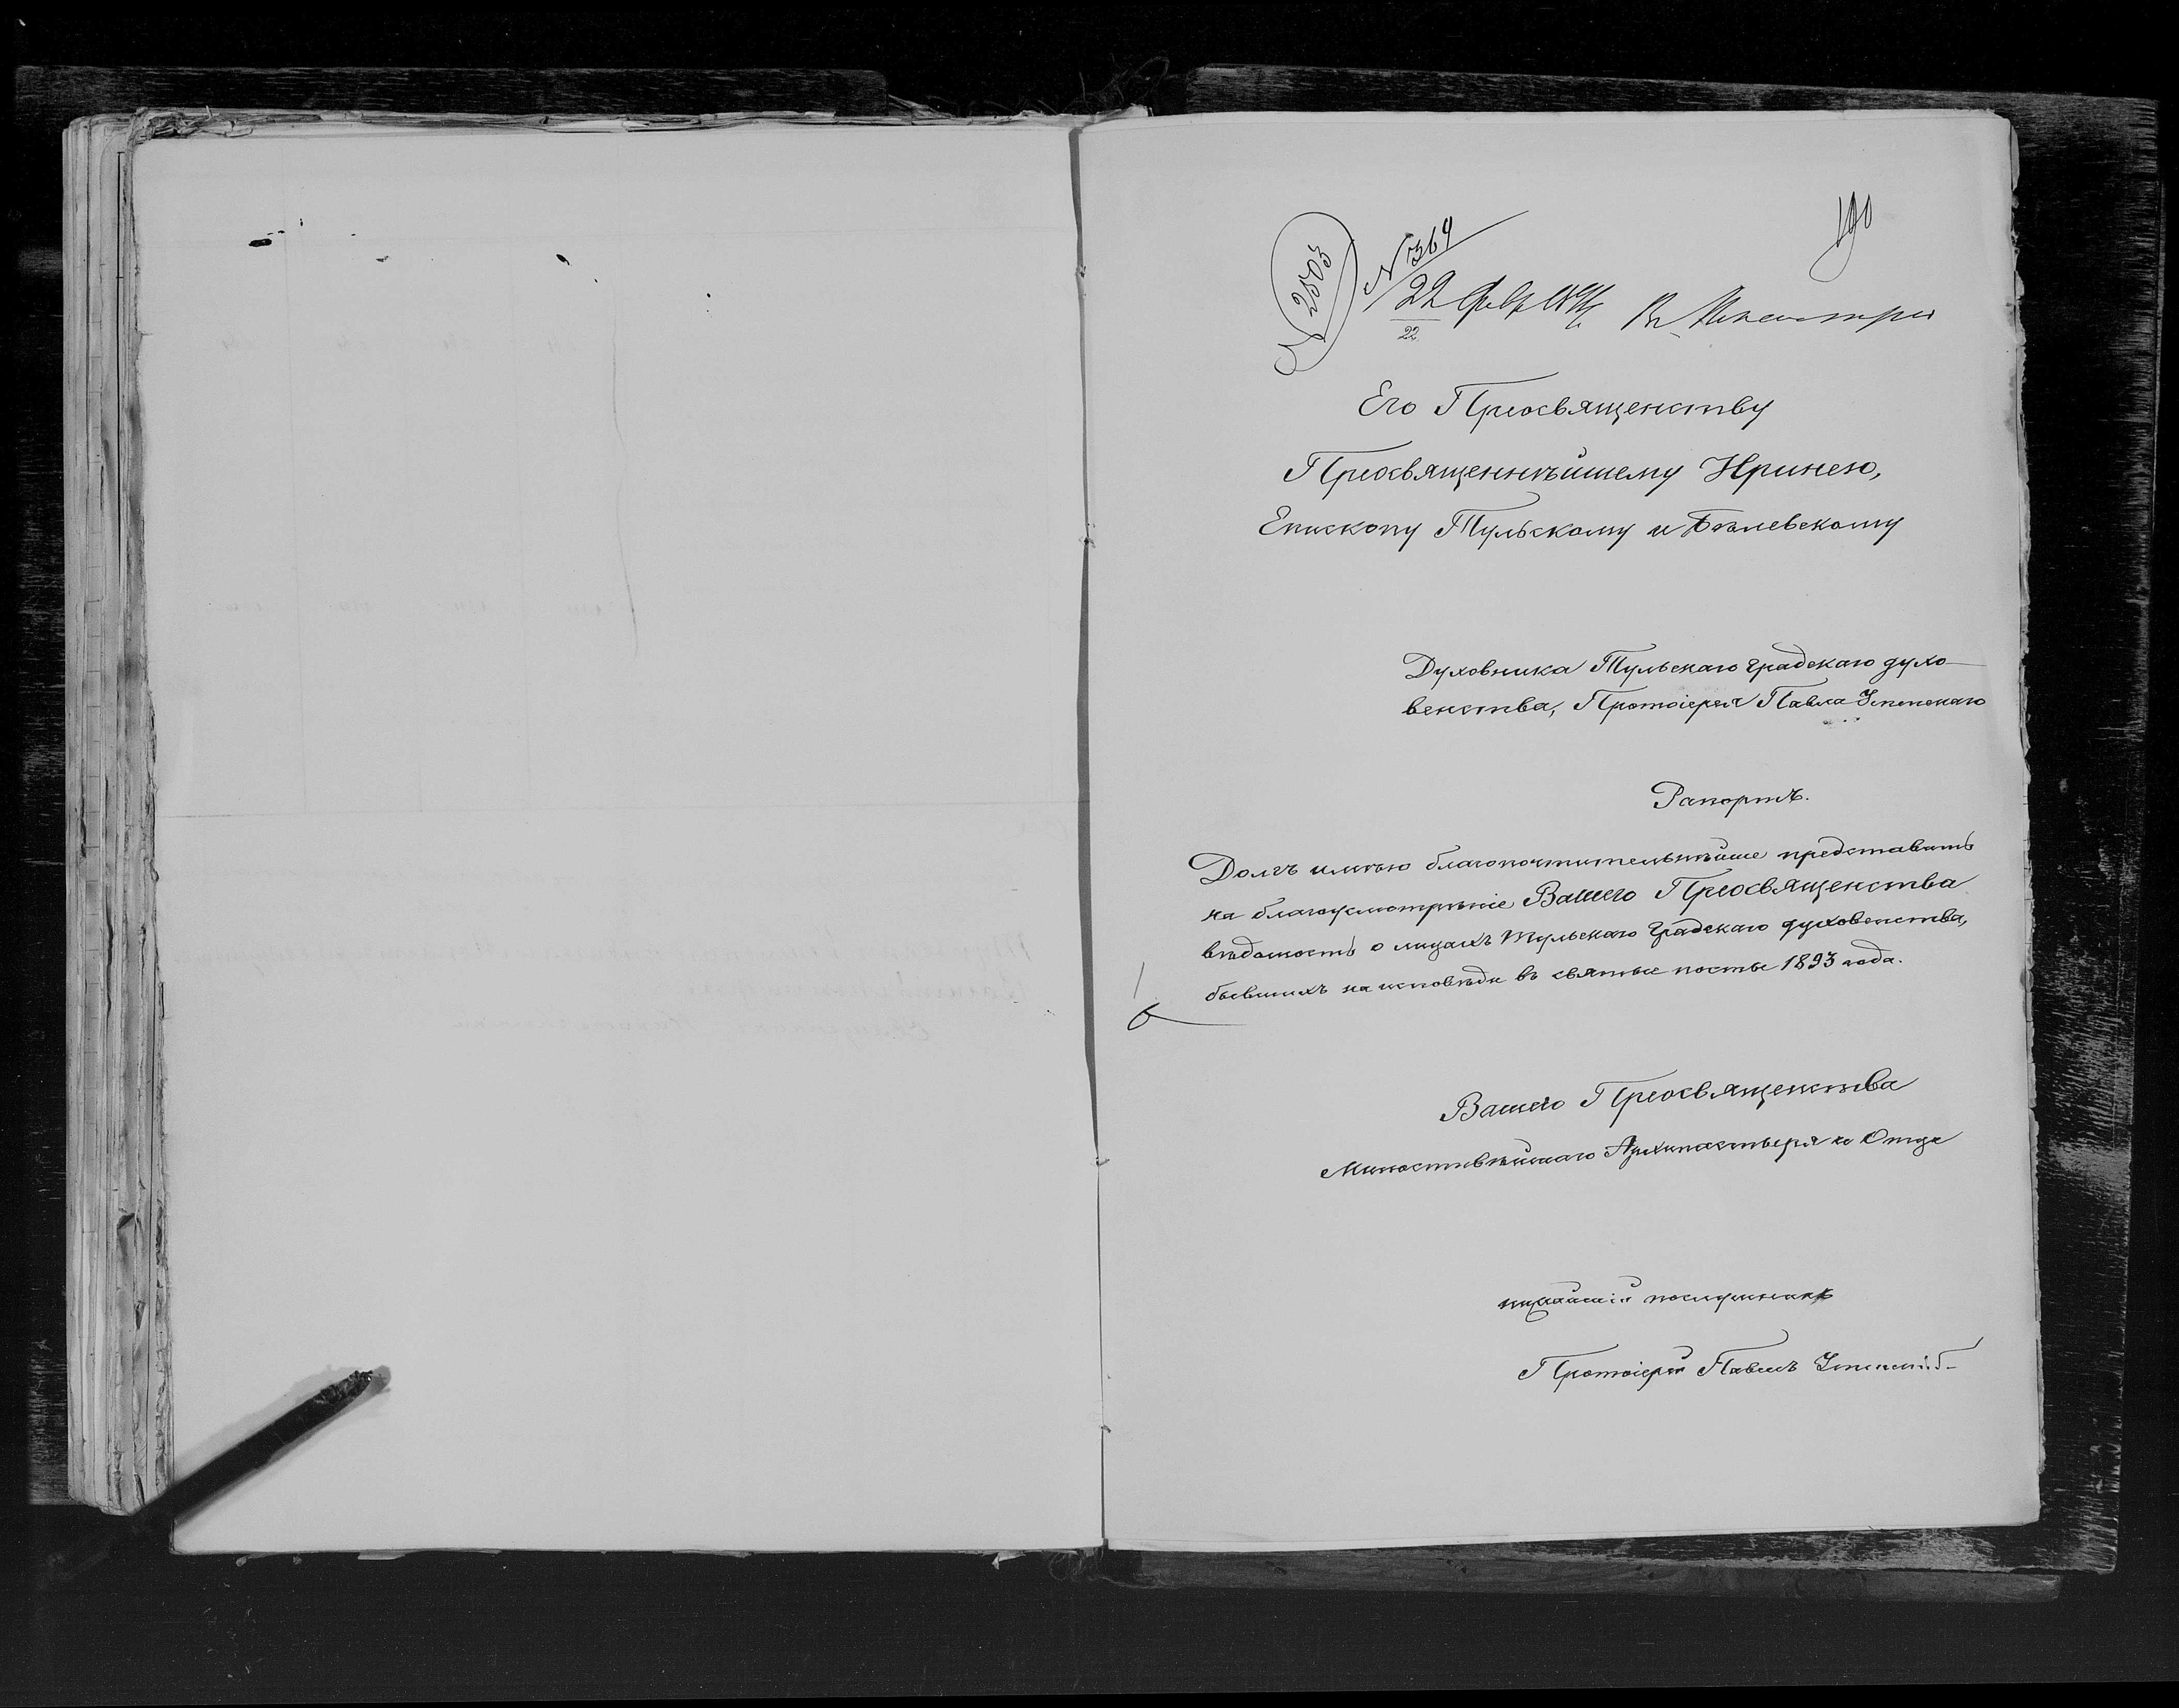 190
2503
№ 369
22 Февр 1894 г. Въ Консисторію
22
Его Преосвященству
Преосвященнѣйшему Иринею,
Епископу Тульскому и Бѣлевскому
Духовника Тульскаго градскаго духо-
венства, Протоіерея Павла Успенскаго
Рапортъ.
Долгъ имѣю благопочтительнѣйше представить
на благоусмотрѣніе Вашего Преосвященства
вѣдомость о лицахъ Тульскаго градскаго духовенства,
бывшихъ на исповѣди въ святые посты 1893 года.
Вашего Преосвященства
Милостивѣйшаго Архипастыря и Отца
нижайшій послушникъ
Протоіерей Павелъ Успенскій